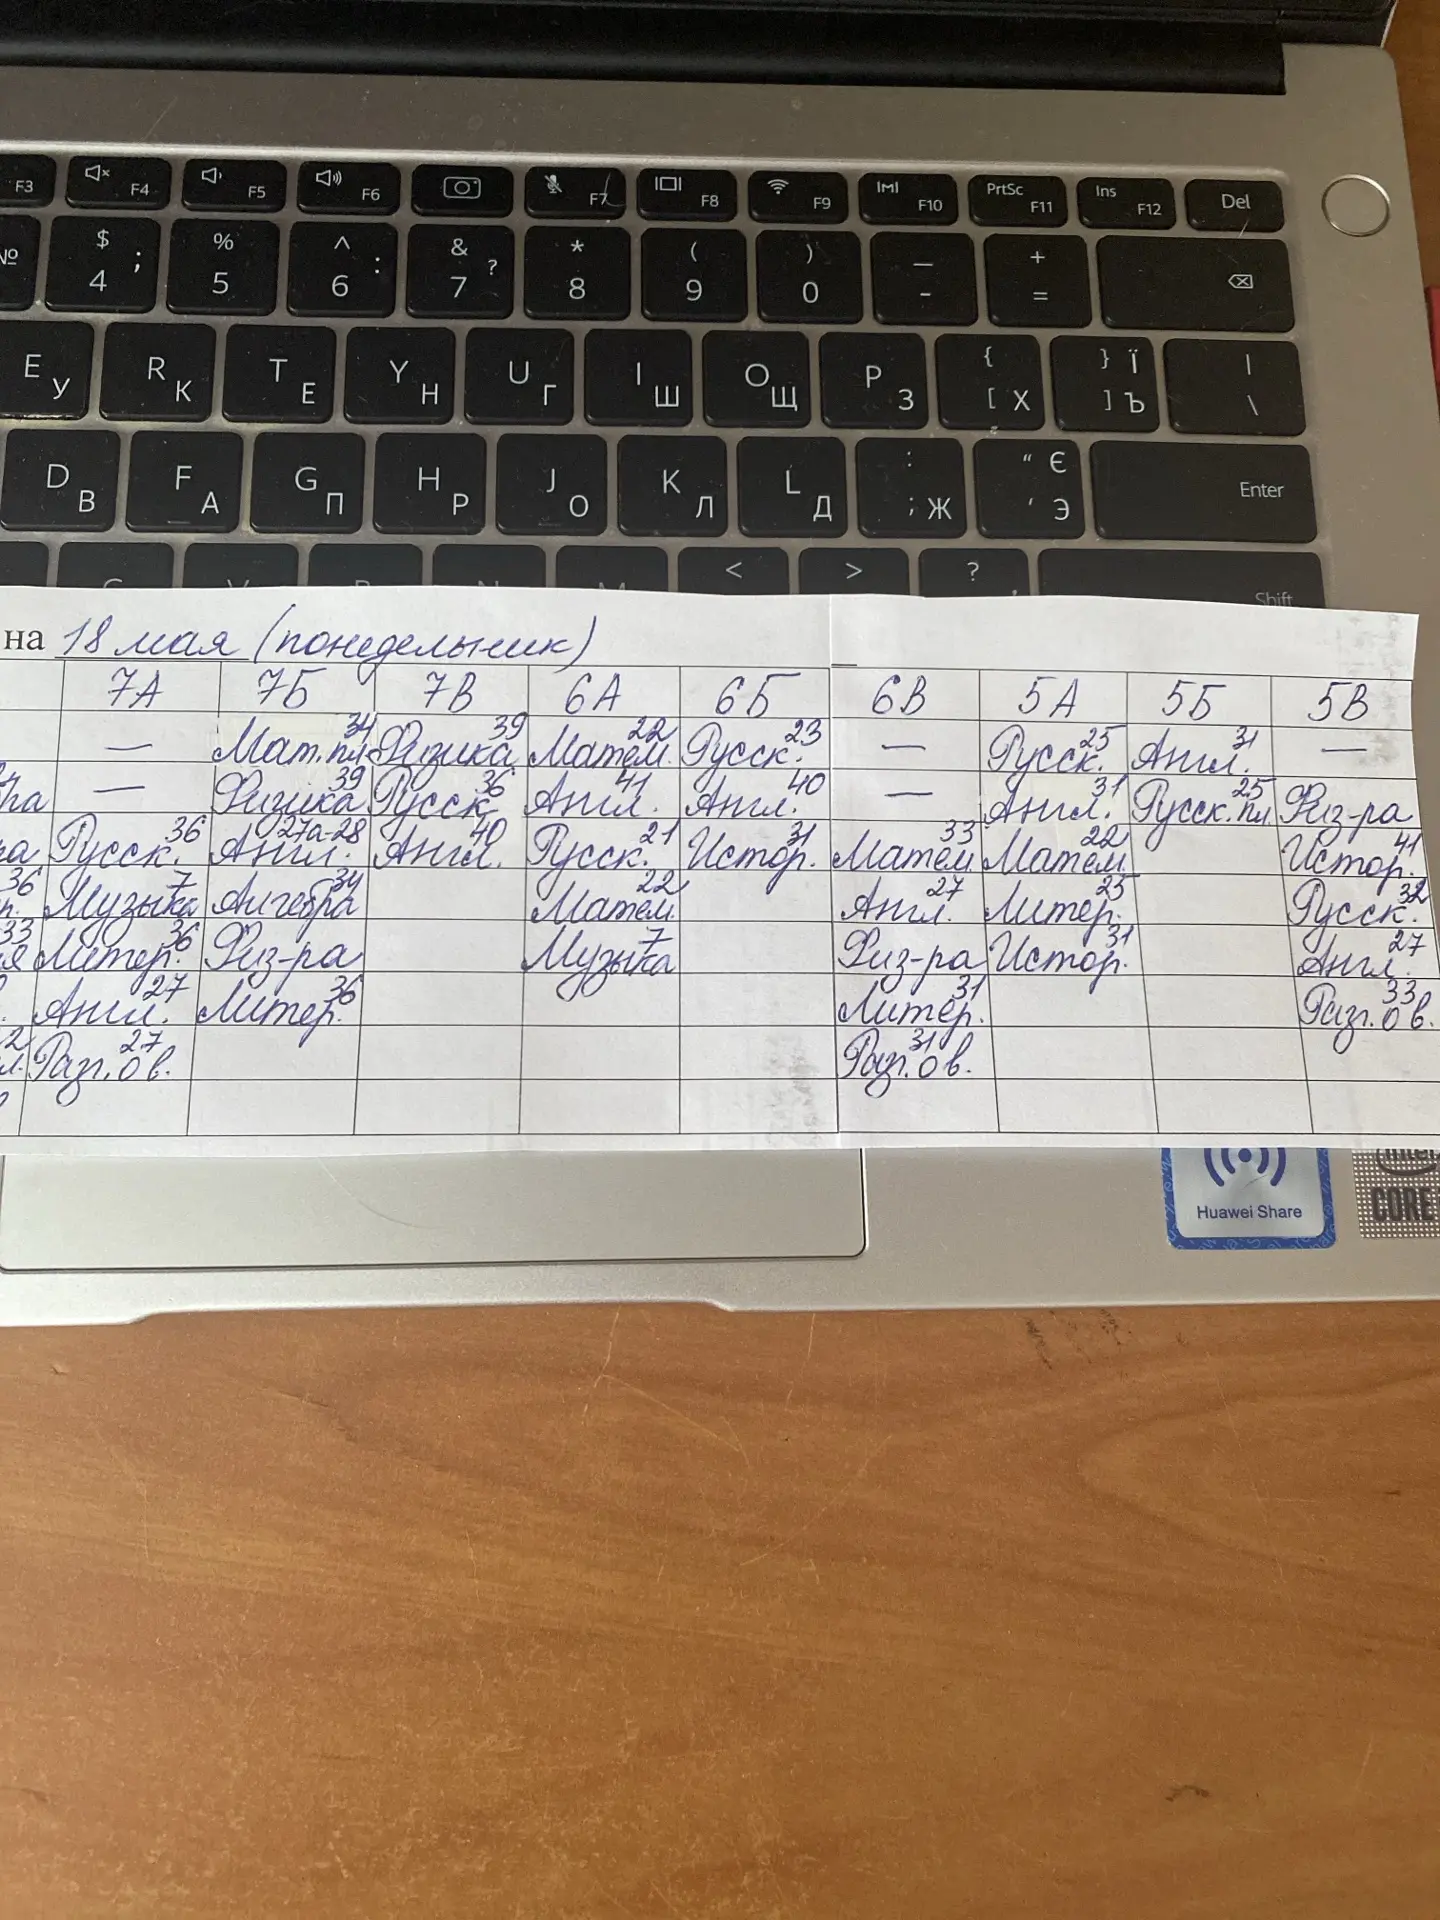 F3 F4 F5 F6 F7 F8 F9 F10 PrtSc F11 Ins F12 Del
№ $ 4 ; % 5 ^ 6 : & 7 ? * 8 ( 9 ) 0 — - + =
E У R К T Е Y Н U Г I Ш O Щ P З { [ Х } ] Ї Ъ | \
D В F А G П H Р J О K Л L Д : ; Ж " ' Є Э Enter
< > ? Shift
на 18 мая (понедельник)
7А 7Б 7В 6А 6Б 6В 5А 5Б 5В
— Мат.пл 34 Физика 39 Матем. 22 Русск. 23 — Русск. 25 Англ. 31 —
— Физика 39 Русск 36 Англ. 41 Англ. 40 — Англ. 31 Русск.пл. 25 Физ-ра
Русск. 36 Англ. 27а-28 Англ. 40 Русск. 21 Истор. 31 Матем. 33 Матем. 22 Истор. 41
36 Музыка 7 Алгебра 34 Матем. 22 Англ. 27 Литер. 25 Русск. 32
33 Литер. 36 Физ-ра Музыка 7 Физ-ра Истор. 31 Англ. 27
Англ. 27 Литер. 36 Литер. 31 Разг. о в. 33
Разг. о в. 27 Разг. о в. 31
Huawei Share
intel
CORE